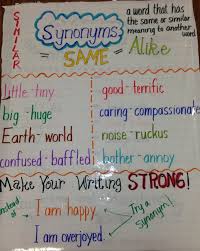 SIMILAR
Synonyms
SAME
a word that has
the same or similar
meaning to another
word
=
Alike
little - tiny
good - terrific
big - huge
caring - compassionate
Earth - world
noise - ruckus
confused - baffled
bother - annoy
Make Your Writing STRONG!
instead of
I am happy.
Try a
synonym!
I am overjoyed.